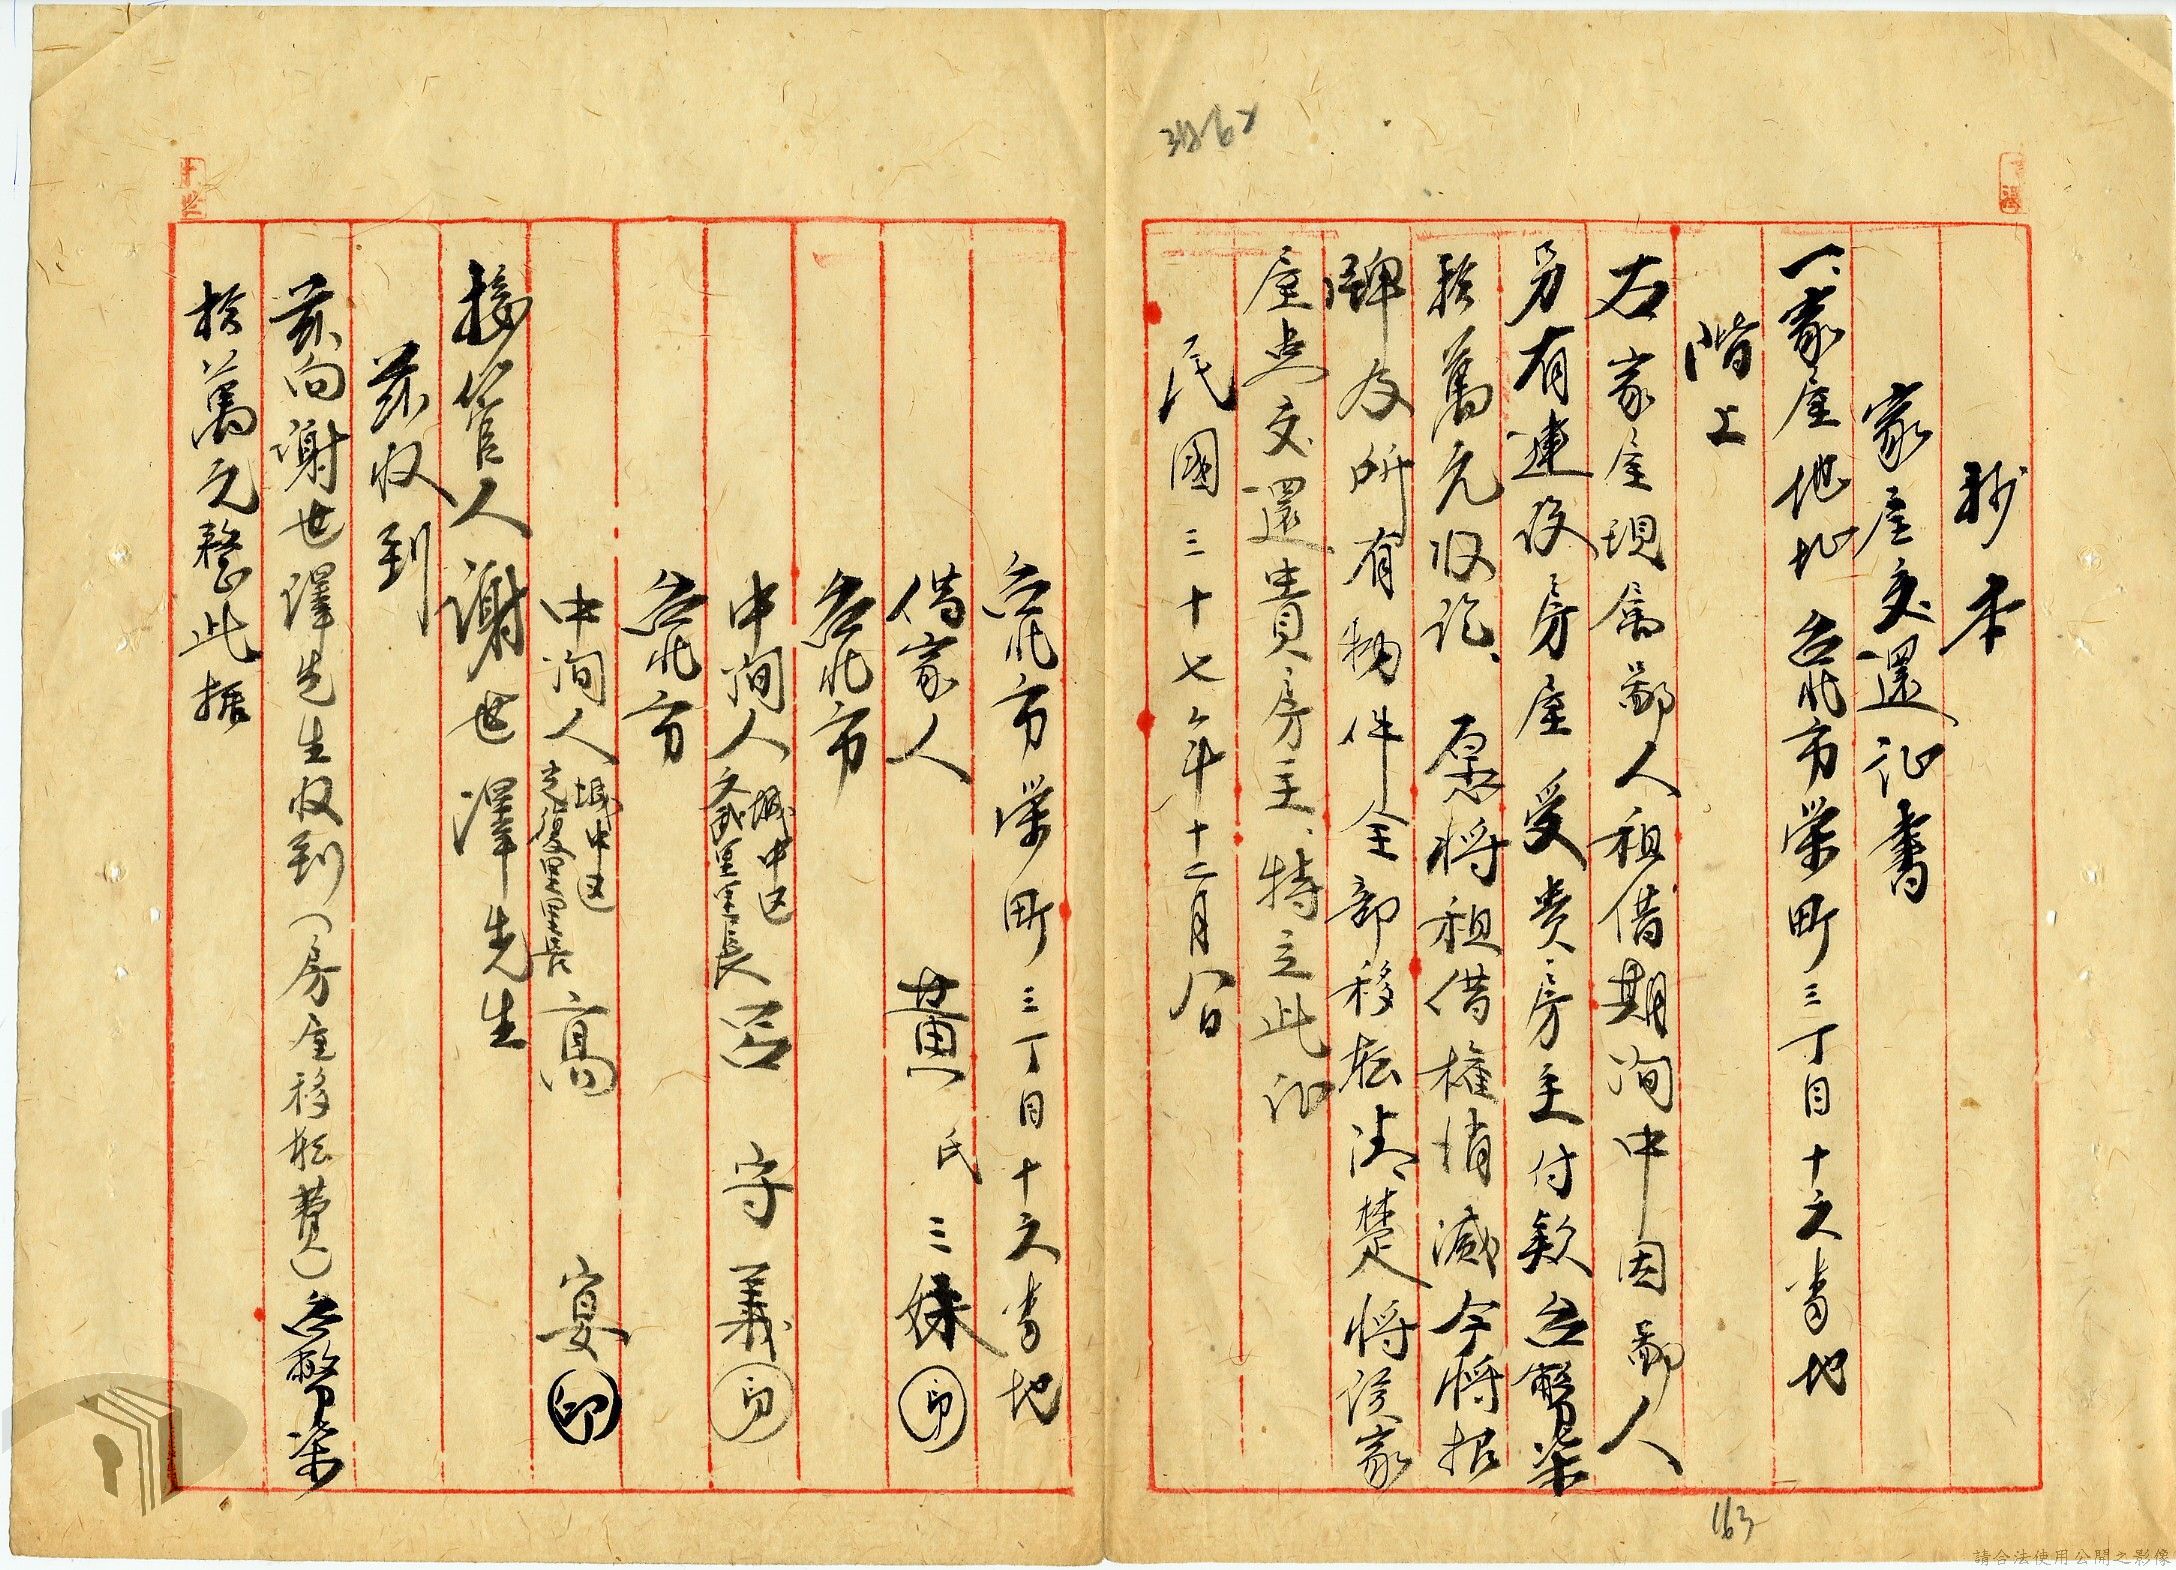 抄本
家屋交還证書
一、家屋地址 台北市榮町三丁目十六番地
階上
右家屋現為鄙人租借期間中因鄙人
另有建设房屋受贵房主付款台幣柒
拾萬元收訖、愿將租借權消滅今将招
牌及所有物件全部移転清楚将该家
屋点交還貴房主、特立此证
民國三十七年十二月八日
台北市榮町三丁目十六番地
借家人 黃氏三妹 印
台北市
中间人 城中区文武里里長 呂守義 印
台北市
中间人 城中区光復里里長 高宴 印
接管人 謝世澤先生
茲收到
茲向謝世澤先生收到(房屋移転費)台幣柒
拾萬元整此據
163
請合法使用公開之影像